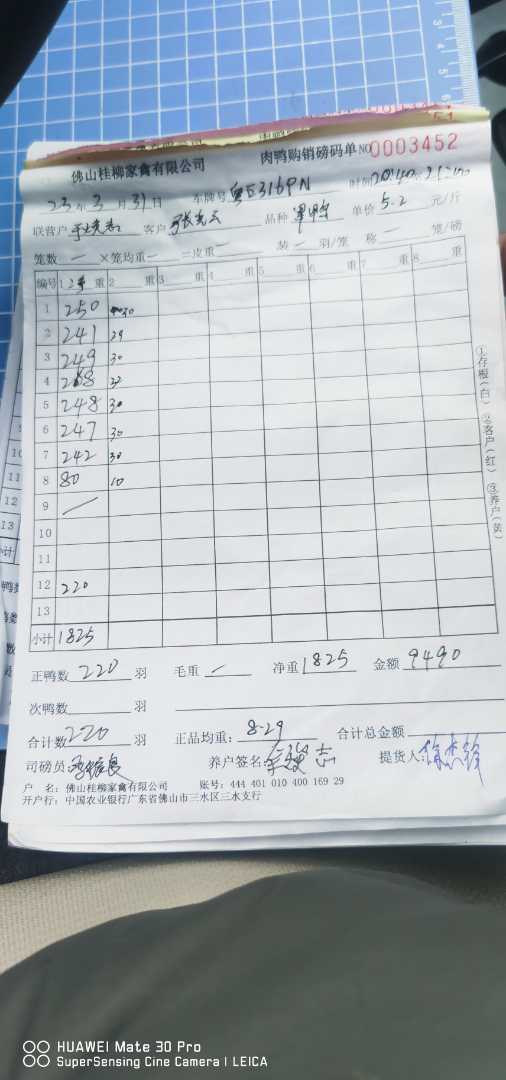 佛山桂柳家禽有限公司 肉鸭购销磅码单 NO 0003452
23年3月31日 车牌号 粤E316PN 时间
联营户 客户 品种 单价 5.2 元/斤
笼数 一 ×笼均重 一 =皮重 一 装 一 羽/笼 称 一 笼/磅
编号 1 重 2 重 3 重 4 重 5 重 6 重 7 重 8 重
1 250 30
2 241 29
3 249 30
4
5 248 30
6 247 30
7 242 30
8 80 10
9
10
11
12 220
13
小计 1825
①存根(白) ②客户(红) ③养户(黄)
正鸭数 220 羽 毛重 一 净重 1825 金额 9490
次鸭数 羽
合计数 220 羽 正品均重: 8.29 合计总金额
司磅员 养户签名: 提货人:
户 名: 佛山桂柳家禽有限公司 账号: 444 401 010 400 169 29
开户行: 中国农业银行广东省佛山市三水区三水支行
HUAWEI Mate 30 Pro
SuperSensing Cine Camera | LEICA